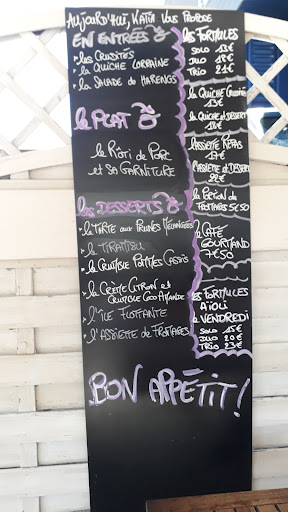 Aujourd'hui, Katia vous propose
EN ENTRÉES
les CRUDITÉS
la QUICHE LORRAINE
la SALADE de HARENGS
le PLAT
le Rôti de Porc
et sa GARNITURE
les DESSERTS
la TARTE aux PRUNES MÉLANGÉES
le TIRAMISU
la CROUSTILLE POMMES CASSIS
la CRÈME CITRON et
l'ÎLE FLOTTANTE
l'ASSIETTE de FROMAGES
les FORMULES
SOLO 13€
DUO 18€
TRIO 21€
la QUICHE CRUDITÉS
13€
la QUICHE et DESSERT
18€
ASSIETTE REPAS
17€
ASSIETTE et DESSERT
22€
la PORTION de
FROMAGES 5€50
le CAFÉ
GOURMAND
7€50
les FORMULES
AÏOLI
le VENDREDI
SOLO 15€
DUO 20€
TRIO 23€
BON APPÉTIT!